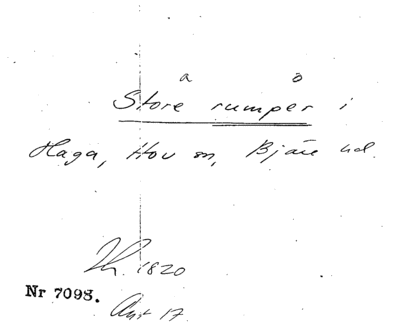 a o
Store rumper i
Haga, Hov sn, Bjäre hd.
1820
Nr 7098.
17